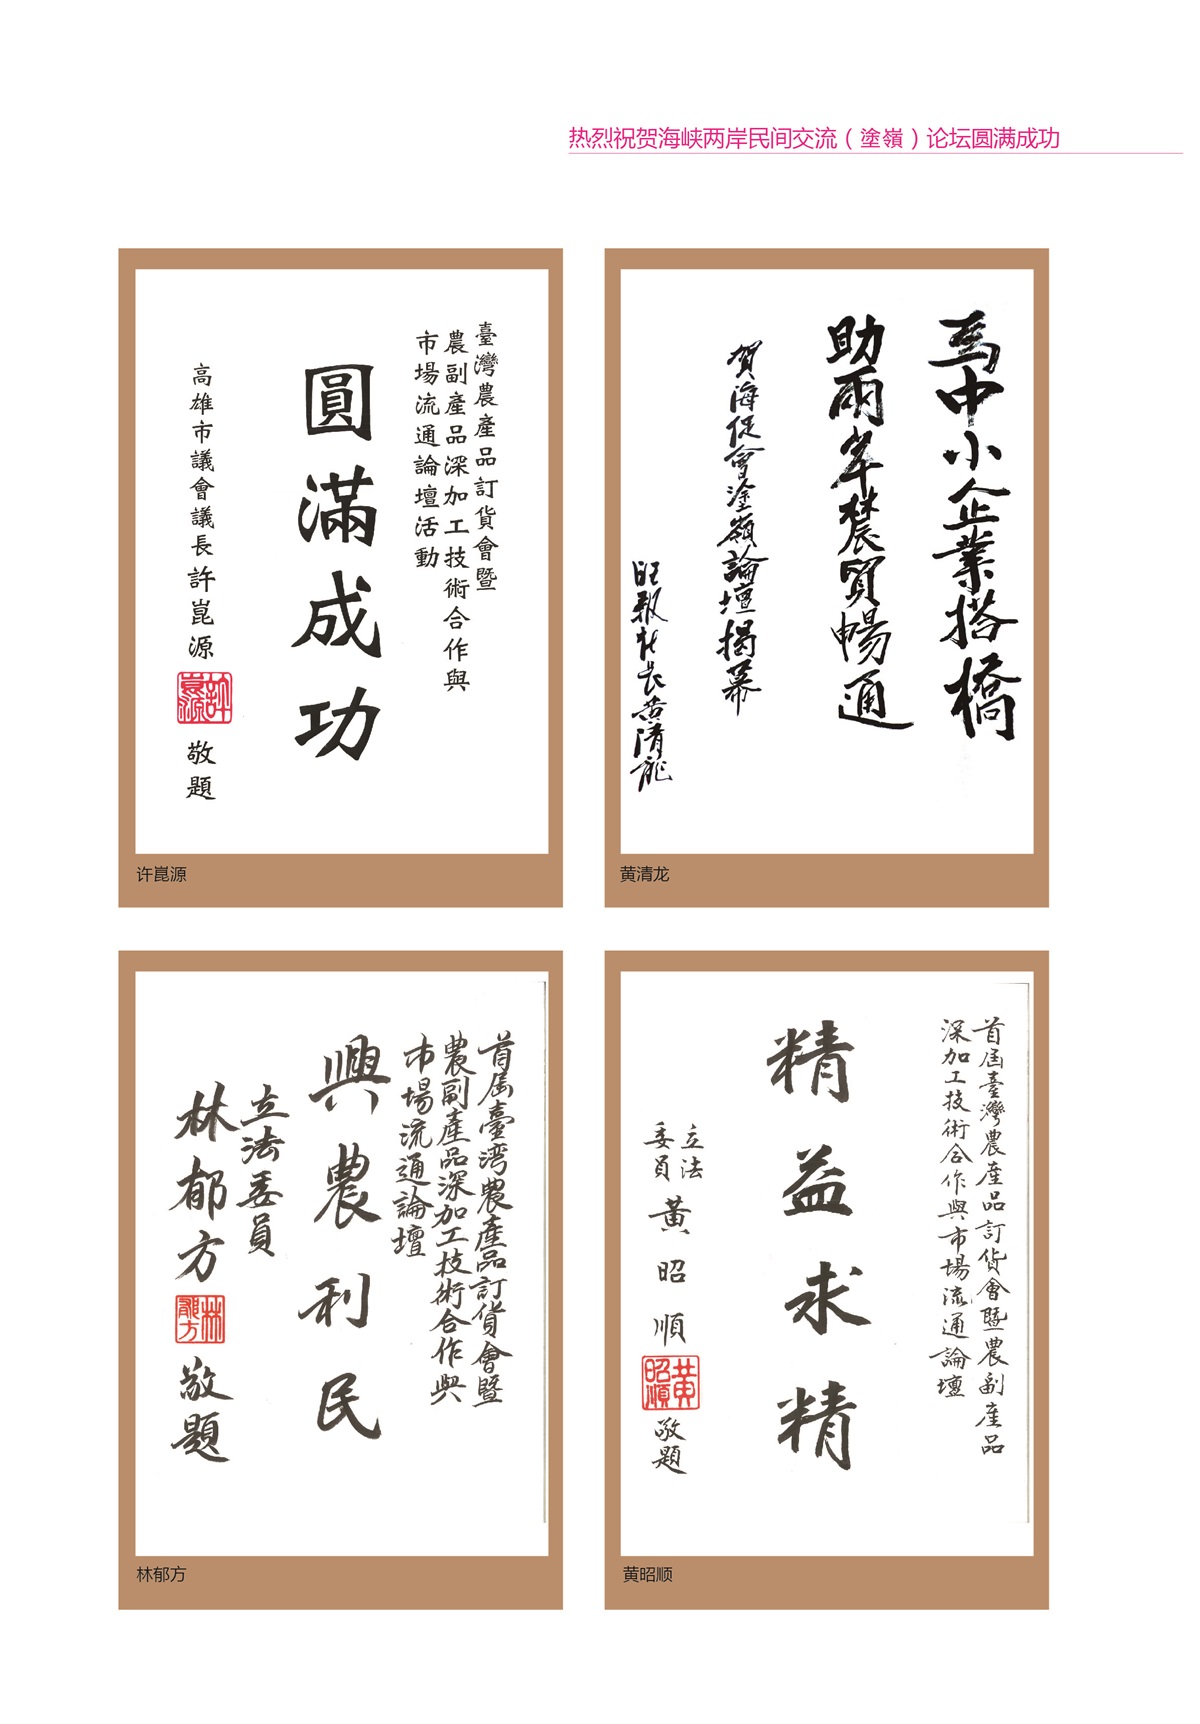 热烈祝贺海峡两岸民间交流（塗嶺）论坛圆满成功
臺灣農產品訂貨會暨
農副產品深加工技術合作與
市場流通論壇活動
圓滿成功
高雄市議會議長許崑源
許崑源
敬題
许崑源
為中小企業搭橋
助兩岸農貿暢通
賀海促會塗嶺論壇揭幕
旺報社長黃清龍
黄清龙
首届臺湾農產品訂貨會暨
農副產品深加工技術合作與
市場流通論壇
興農利民
立法委員
林郁方
林郁方
敬題
林郁方
首届臺灣農產品訂貨會暨農副產品
深加工技術合作與市場流通論壇
精益求精
立法
委員
黃昭順
黃昭順
敬題
黄昭顺